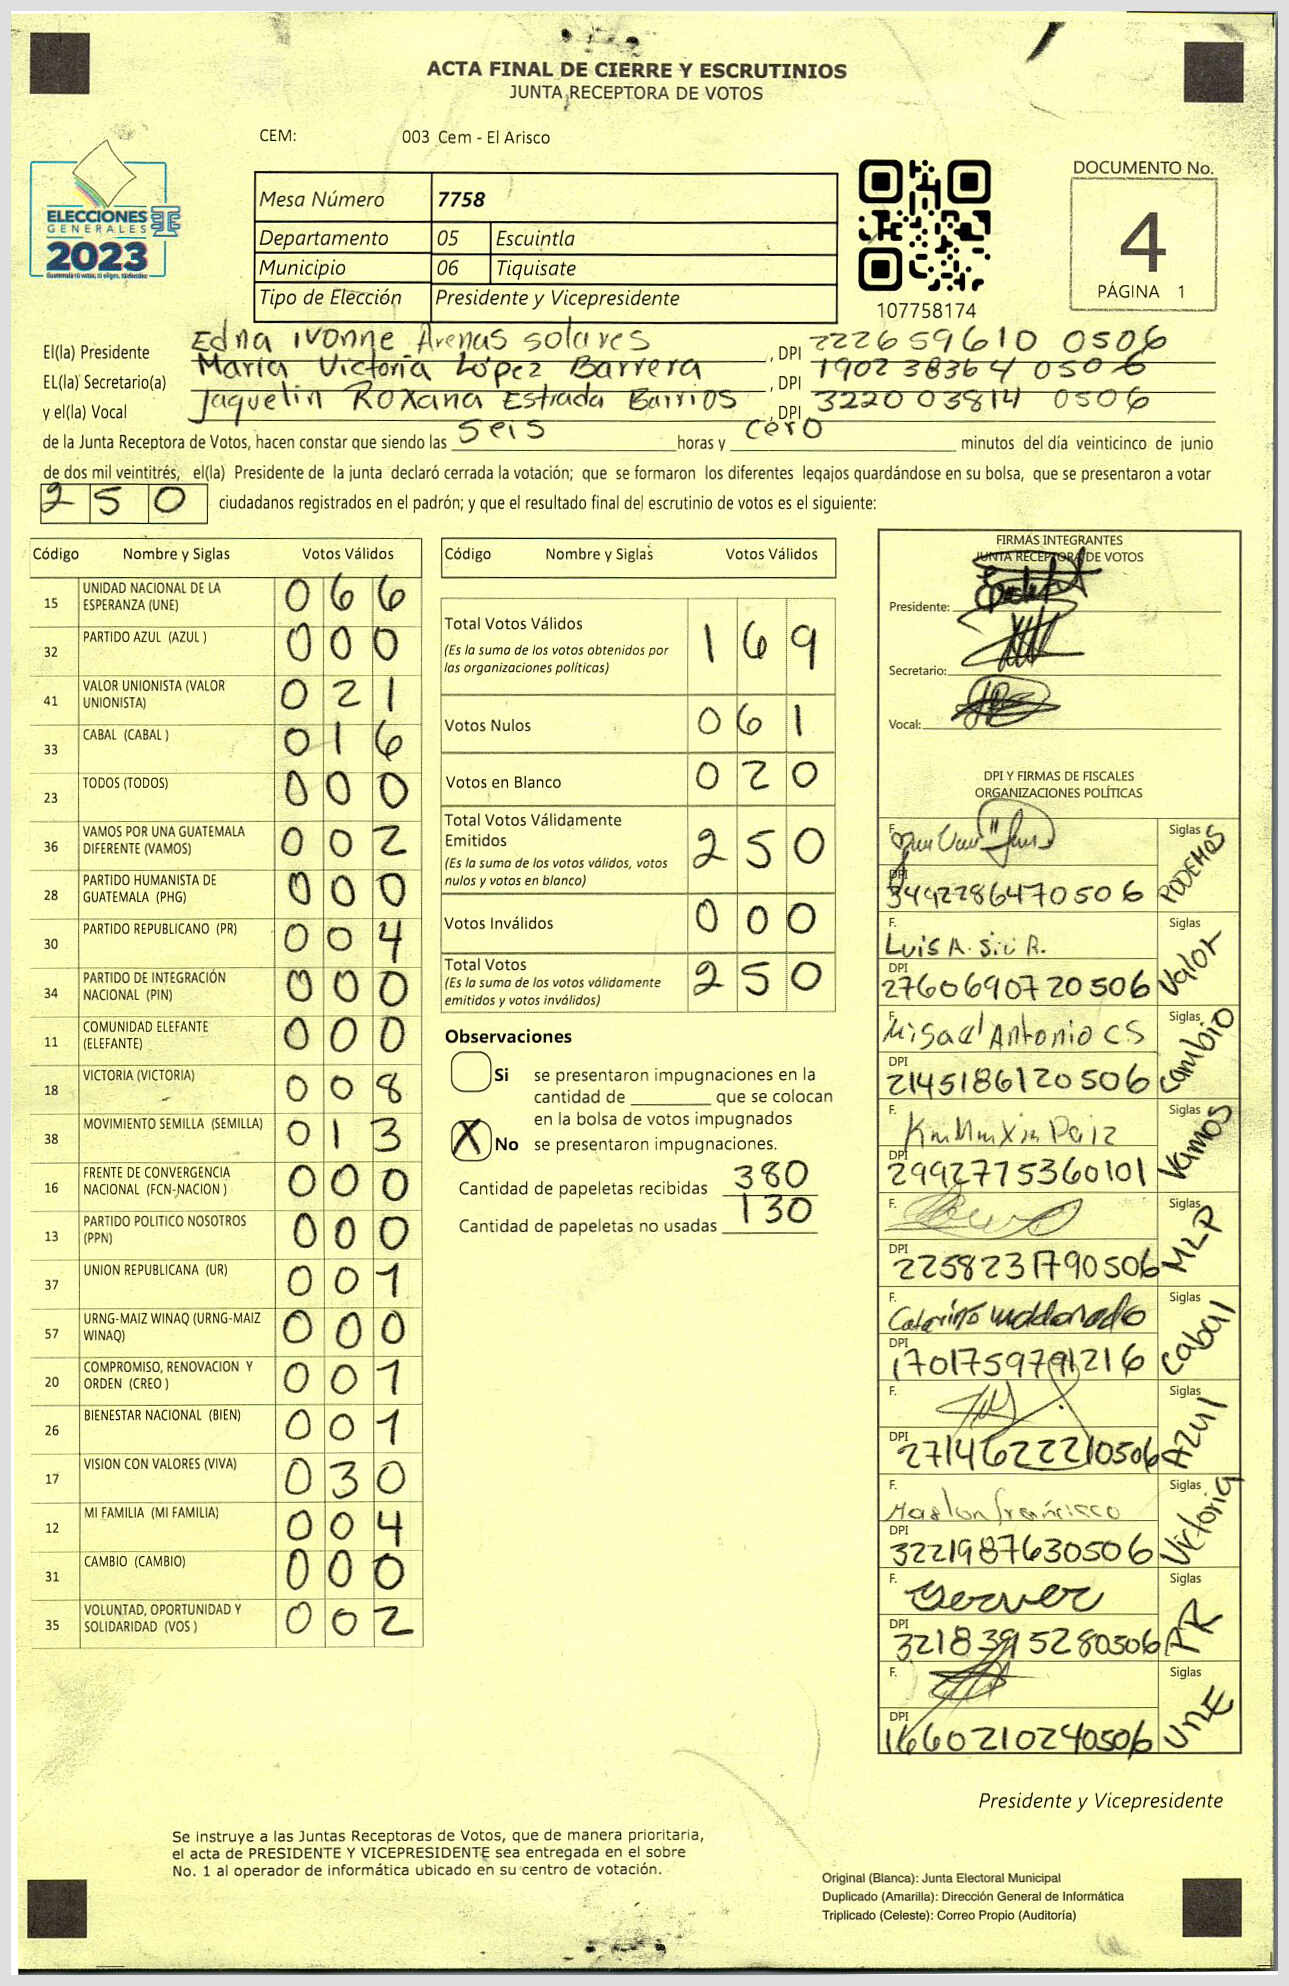 ACTA FINAL DE CIERRE Y ESCRUTINIOS
JUNTA RECEPTORA DE VOTOS
CEM: 003 Cem - El Arisco
ELECCIONES
GENERALES
2023
Mesa Número 7758
Departamento 05 Escuintla
Municipio 06 Tiquisate
Tipo de Elección Presidente y Vicepresidente
107758174
DOCUMENTO No.
4
PÁGINA 1
El(la) Presidente Edna ivonne Arenas solares, DPI 222659610 0506
EL(la) Secretario(a) María Victoria López Barrera, DPI 190238364 0506
y el(la) Vocal Jaquelin Roxana Estrada Barrios, DPI 322003814 0506
de la Junta Receptora de Votos, hacen constar que siendo las seis horas y cero minutos del día veinticinco de junio
de dos mil veintitrés, el(la) Presidente de la junta declaró cerrada la votación; que se formaron los diferentes legajos guardándose en su bolsa, que se presentaron a votar
250 ciudadanos registrados en el padrón; y que el resultado final del escrutinio de votos es el siguiente:
Código Nombre y Siglas Votos Válidos
15 UNIDAD NACIONAL DE LA ESPERANZA (UNE) 066
32 PARTIDO AZUL (AZUL ) 000
41 VALOR UNIONISTA (VALOR UNIONISTA) 021
33 CABAL (CABAL ) 016
23 TODOS (TODOS) 000
36 VAMOS POR UNA GUATEMALA DIFERENTE (VAMOS) 002
28 PARTIDO HUMANISTA DE GUATEMALA (PHG) 000
30 PARTIDO REPUBLICANO (PR) 004
34 PARTIDO DE INTEGRACIÓN NACIONAL (PIN) 000
11 COMUNIDAD ELEFANTE (ELEFANTE) 000
18 VICTORIA (VICTORIA) 008
38 MOVIMIENTO SEMILLA (SEMILLA) 013
16 FRENTE DE CONVERGENCIA NACIONAL (FCN-NACION ) 000
13 PARTIDO POLITICO NOSOTROS (PPN) 000
37 UNION REPUBLICANA (UR) 001
57 URNG-MAIZ WINAQ (URNG-MAIZ WINAQ) 000
20 COMPROMISO, RENOVACION Y ORDEN (CREO ) 001
26 BIENESTAR NACIONAL (BIEN) 001
17 VISION CON VALORES (VIVA) 030
12 MI FAMILIA (MI FAMILIA) 004
31 CAMBIO (CAMBIO) 000
35 VOLUNTAD, OPORTUNIDAD Y SOLIDARIDAD (VOS ) 002
Código Nombre y Siglas Votos Válidos
Total Votos Válidos 169
(Es la suma de los votos obtenidos por
las organizaciones políticas)
Votos Nulos 061
Votos en Blanco 020
Total Votos Válidamente
Emitidos 250
(Es la suma de los votos válidos, votos
nulos y votos en blanco)
Votos Inválidos 000
Total Votos 250
(Es la suma de los votos válidamente
emitidos y votos inválidos)
Observaciones
Si se presentaron impugnaciones en la
cantidad de ________ que se colocan
en la bolsa de votos impugnados
X No se presentaron impugnaciones.
Cantidad de papeletas recibidas 380
Cantidad de papeletas no usadas 130
FIRMAS INTEGRANTES
JUNTA RECEPTORA DE VOTOS
Presidente:
Secretario:
Vocal:
DPI Y FIRMAS DE FISCALES
ORGANIZACIONES POLÍTICAS
F. Siglas PODEMOS
DPI 3492286470506
F. Luis A. Sic R. Siglas Valor
DPI 2760690720506
F. Misael Antonio CS Siglas Cambio
DPI 2145186120506
F. Paiz Siglas Vamos
DPI 2992775360101
F. Siglas MLP
DPI 2258231790506
F. Catarino Maldonado Siglas Cabal
DPI 1701759791216
F. Siglas Azul
DPI 2714622210506
F. Marlon francisco Siglas Victoria
DPI 3221987630506
F. Siglas PR
DPI 3218395280506
F. Siglas UNE
DPI 1660210240506
Presidente y Vicepresidente
Se instruye a las Juntas Receptoras de Votos, que de manera prioritaria,
el acta de PRESIDENTE Y VICEPRESIDENTE sea entregada en el sobre
No. 1 al operador de informática ubicado en su centro de votación.
Original (Blanca): Junta Electoral Municipal
Duplicado (Amarilla): Dirección General de Informática
Triplicado (Celeste): Correo Propio (Auditoría)